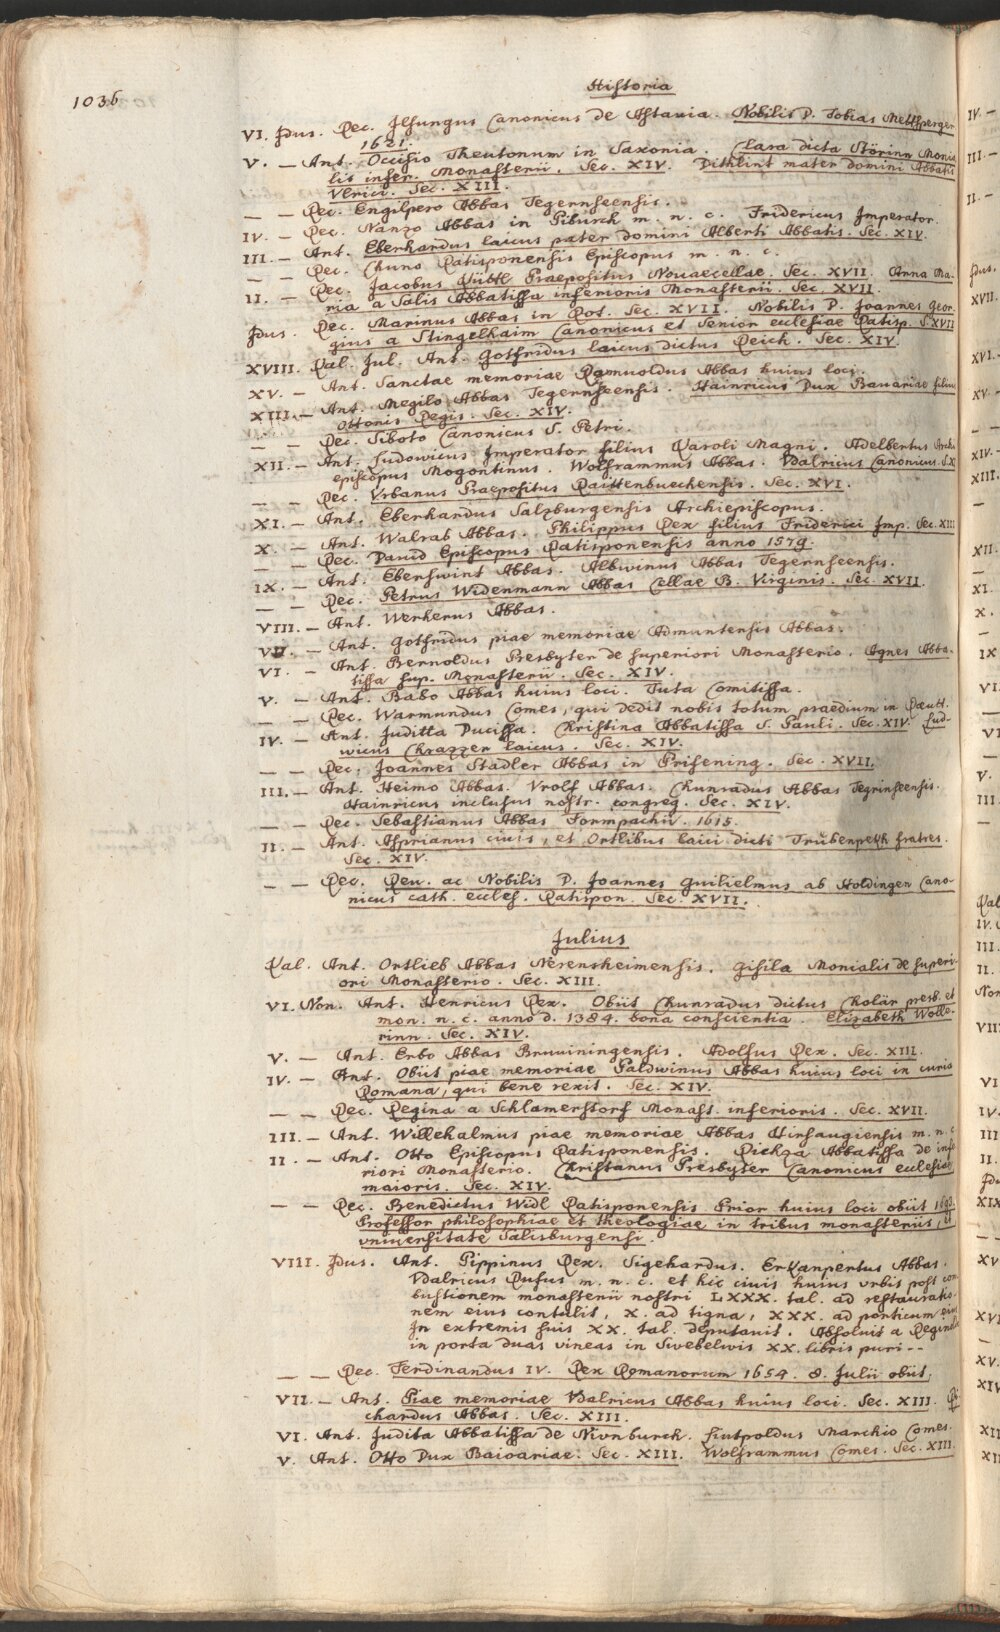 1036
Historia
VI. Idus. Rec. Ilsungus Canonicus de Astauia. Nobilis D. Tobias Mettsperger
1621.
V. — Ant. Occisio Theutonum in Saxonia. Clara dicta Störinn Monia
lis infer. Monasterii. Sec. XIV. Dithlint mater domini Abbatis
Vlrici. Sec. XIII.
— — Rec. Engilpero Abbas Tegernseensis.
IV. — Rec. Nanzo Abbas in Piburch m. n. c. Fridericus Imperator.
III. — Ant. Eberhardus laicus pater domini Alberti Abbatis. Sec. XIV.
— Rec. Chuno Ratisponensis Episcopus m. n. c.
II. — Rec. Jacobus Rüttl Praepositus Nouaecellae. Sec. XVII. Anna Ma-
ria a Salis Abbatissa inferioris Monasterii. Sec. XVII.
Idus. Rec. Marinus Abbas in Rot. Sec. XVII. Nobilis D. Joannes Geor-
gius a Stingelhaim Canonicus et Senior ecclesiae Ratisp. S. XVII
XVIII. Kal. Jul. Ant. Gotfridus laicus dictus Reich. Sec. XIV.
XV. — Ant. Sanctae memoriae Ramuoldus Abbas huius loci.
XIII. — Ant. Megilo Abbas Tegernseensis. Hainricus Dux Bauariae filius
Ottonis Regis. Sec. XIV.
— Rec. Siboto Canonicus S. Petri.
XII. — Ant. Ludowicus Imperator filius Karoli Magni. Adelbertus Archi
episcopus Mogontinus. Wolframmus Abbas. Vdalricus Canonicus. S. X
— — Rec. Vrbanus Praepositus Raittenbuechensis. Sec. XVI.
XI. — Ant. Eberhardus Salzburgensis Archiepiscopus.
X. — Ant. Walrab Abbas. Philippus Rex filius Friderici Imp. Sec. XIII
— — Rec. Dauid Episcopus Ratisponensis anno 1579.
IX. — Ant. Eberhwint Abbas. Albwinus Abbas Tegernseensis.
— — Rec. Petrus Widenmann Abbas Cellae B. Virginis. Sec. XVII.
VIII. — Ant. Werherus Abbas.
VII. — Ant. Gotfridus piae memoriae Admuntensis Abbas.
VI. — Ant. Bernoldus Presbyter de superiori Monasterio. Agnes Abba-
tissa sup. Monasterii. Sec. XIV.
V. — Ant. Babo Abbas huius loci. Juta Comitissa.
— — Rec. Warmundus Comes, qui dedit nobis totum praedium in Raeutt.
IV. — Ant. Juditta Ducissa. Christina Abbatissa S. Pauli. Sec. XIV. Lud-
wicus Chrazzer laicus. Sec. XIV.
— — Rec. Joannes Stadler Abbas in Prifening. Sec. XVII.
III. — Ant. Heimo Abbas. Vrolf Abbas. Chunradus Abbas Tegrinseensis.
Hainricus inclusus nostr. congreg. Sec. XIV.
— — Rec. Sebastianus Abbas Formpachii. 1615.
II. — Ant. Asprianus ciuis, et Ortlibus laici dicti Trubenpekh fratres.
Sec. XIV.
— — Rec. Reu. ac Nobilis D. Joannes Guilielmus ab Holdingen Cano-
nicus cath. eccles. Ratispon. Sec. XVII.
Julius
Kal. Ant. Ortlieb Abbas Nerensheimensis. Gisila Monialis de superi-
ori Monasterio. Sec. XIII.
VI. Non. Ant. Henricus Rex. Obiit Chunradus dictus Cholär presb. et
mon. n. c. anno d. 1384. bona conscientia. Elizabeth Wolle-
rinn. Sec. XIV.
V. — Ant. Erbo Abbas Bruuiningensis. Adolfus Rex. Sec. XIII.
IV. — Ant. Obiit piae memoriae Paldwinus Abbas huius loci in curia
Romana, qui bene rexit. Sec. XIV.
— — Rec. Regina a Schlamerstorf Monast. inferioris. Sec. XVII.
III. — Ant. Willehalmus piae memoriae Abbas Hirsaugiensis m. n. c
II. — Ant. Otto Episcopus Ratisponensis. Richza Abbatissa de infe
riori Monasterio. Christanus Presbyter Canonicus ecclesiae
maioris. Sec. XIV.
— — Rec. Benedictus Widl Ratisponensis Prior huius loci obiit 1693.
Professor philosophiae et theologiae in tribus monasteriis, et
vniuersitate Salisburgensi.
VIII. Idus. Ant. Pippinus Rex. Sigehardus. Erkanpertus Abbas.
Vdalricus Rufus m. n. c. et hic ciuis huius vrbis post com
bustionem monasterii nostri LXXX. tal. ad restauratio-
nem eius contulit, X. ad tigna, XXX. ad ponticum eius
In extremis suis XX. tal. deputauit. Absoluit a Reginol
in porta duas vineas in Swebelwis XX. libris puri --
— — Rec. Ferdinandus IV. Rex Romanorum 1654. 8. Julii obiit.
VII. — Ant. Piae memoriae Vdalricus Abbas huius loci. Sec. XIII. Ri
chardus Abbas. Sec. XIII.
VI. Ant. Judita Abbatissa de Nivnburch. Liutpoldus Marchio Comes.
V. Ant. Otto Dux Baioariae. Sec. XIII. Wolframmus Comes. Sec. XIII.